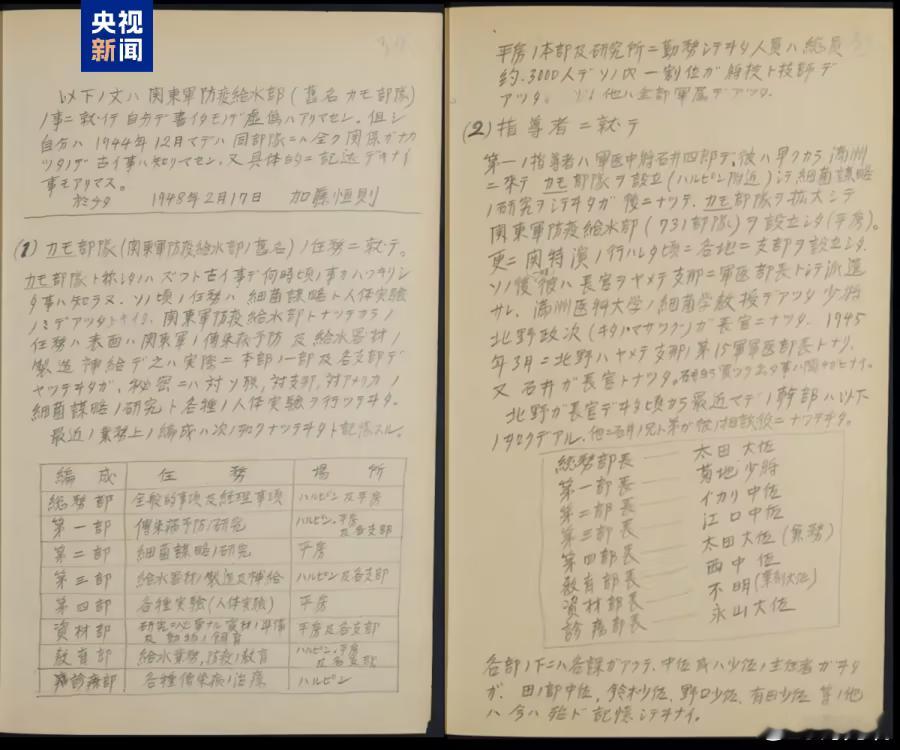 央视
新闻
以下ノ文ハ 関東軍防疫給水部 (舊名 カモ部隊)
ノ事ニ就イテ自分デ書イタモノデ虚偽ハアリマセン。但シ
自分ハ 1944年12月マデハ同部隊ニハ全ク関係ガナカ
ツタノデ古イ事ハ知リマセン。又具体的ニ記述デキナイ
事モアリマス。
於チタ 1948年2月17日 加藤恒則
(1) カモ部隊 (関東軍防疫給水部ノ舊名) ノ任務ニ就テ。
カモ部隊ト称シタノハズツト古イ事デ何時頃ノ事カハツキリシ
タ事ハ知ラヌ。ソノ頃ノ任務ハ 細菌謀略ト人体実験
ノミデアツタ 関東軍防疫給水部トナツテカラノ
任務ハ表面ハ関東軍ノ傳染病予防 及 給水器材ノ
製造補給デ之ハ実際ニ本部ノ一部及各支部デ
ヤツテヰタガ、秘密ニハ対ソ联,対支那,対アメリカノ
細菌謀略ノ研究ト各種ノ人体実験ヲ行ツテヰタ。
最近ノ業務上ノ編成ハ次ノ如クナツテヰタト記憶スル。
編成 任務 場所
総務部 全般的事項及経理事項 ハルピン及平房
第一部 傳染病予防ノ研究 ハルピン,平房及各支部
第二部 細菌謀略ノ研究 平房
第三部 給水器材ノ製造及補給 ハルピン及各支部
第四部 各種実験(人体実験) 平房
資材部 研究ニ必要ナル資材ノ準備及動物ノ飼育 平房及各支部
教育部 給水業務,防疫ノ教育 ハルピン,平房及各支部
診療部 各種傳染病ノ治療 ハルピン
平房ノ本部及研究所ニ勤務シテヰタ人員ハ総員
約.3000人デソノ内一割位ガ将校ト技師デ
アツタ。 他ハ全部軍属デアツタ。
(2) 指導者ニ就テ
第一ノ指導者ハ軍医中将石井四郎デ,彼ハ早クカラ満洲
ニ來テ カモ部隊ヲ設立(ハルピン附近)シテ細菌謀略
ノ研究ヲシテヰタガ 後ニナツテ、カモ部隊ヲ拡大シテ
関東軍防疫給水部(731部隊)ヲ設立シタ(平房)。
更ニ関特演ノ行ハレタ頃ニ各地ニ支部ヲ設立シタ.
ソノ後彼ハ長官ヲヤメテ支那ニ軍医部長トシテ派遣
サレ、満洲医科大学ノ細菌学教授デアツタ少将
北野政次(キタノマサツグ)ガ長官ニナツタ. 1945
年3月ニ北野ハヤメテ支那ノ第15軍軍医部長トナリ,
又石井ガ長官トナツタ。
北野ガ長官デヰタ頃カラ最近マデノ幹部ハ以下
ノ如クデアル. 他ニ石井ノ兄ト弟ガ彼ノ相談役ニナツテヰタ。
総務部長 太田大佐
第一部長 菊地少将
第二部長 イカリ中佐
第三部長 江口中佐
第四部長 太田大佐(兼務)
教育部長 西中佐
資材部長 不明
診療部長 永山大佐
各部ノ下ニハ各課ガアツテ、中佐或ハ少佐ノ主任者ガヰタ
ガ, 田ノ部中佐, 鈴木少佐, 野口少佐, 有田少佐 等ノ他
ハ今ハ殆ド記憶シテヰナイ。